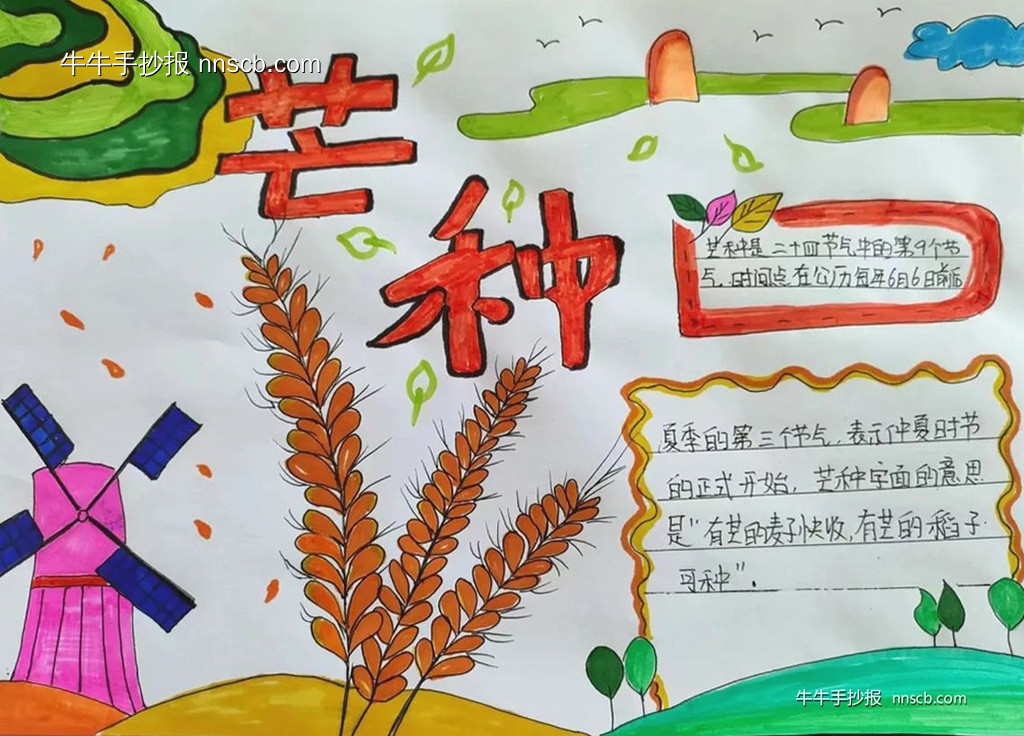 牛牛手抄报 nnscb.com
芒
种
芒种是二十四节气中的第9个节
气,时间点在公历每年6月6日前后
夏季的第三个节气,表示仲夏时节
的正式开始,芒种字面的意思
是"有芒的麦子快收,有芒的稻子
可种".
牛牛手抄报 nnscb.com